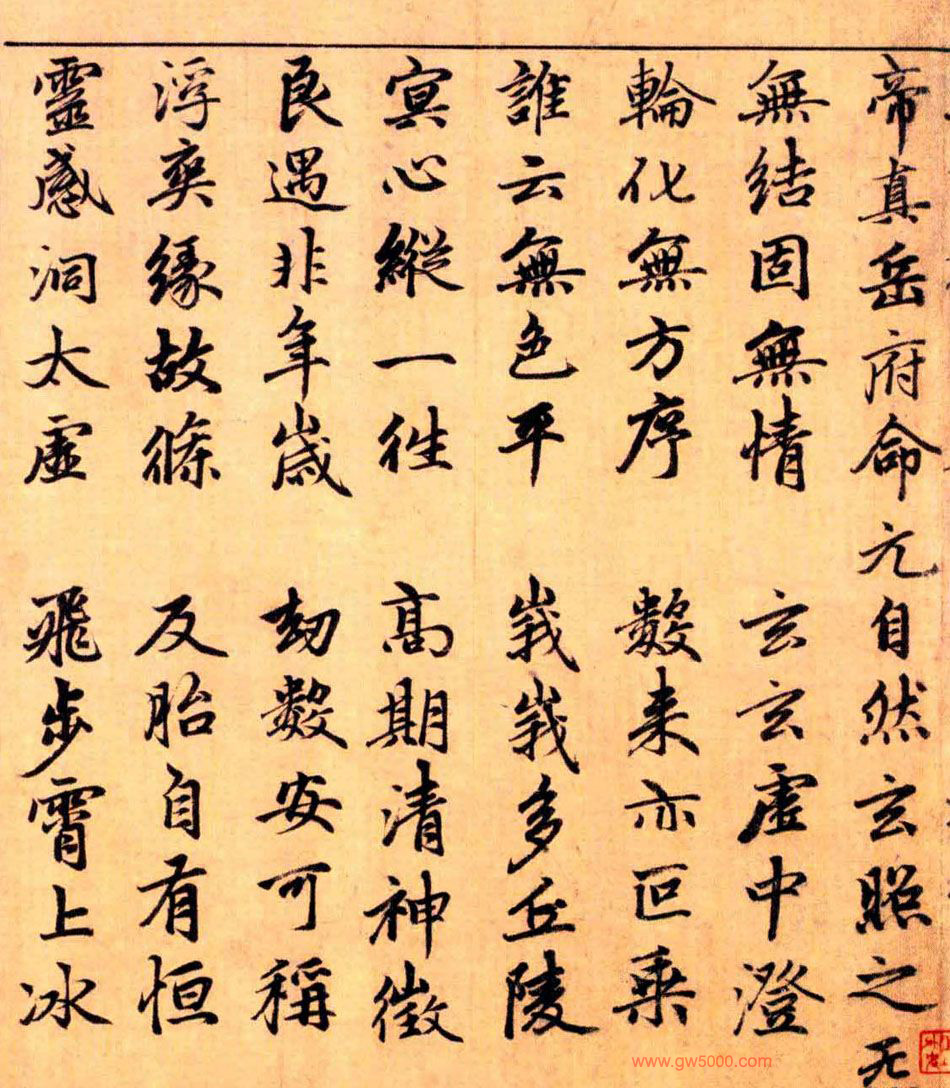 帝真岳府命元自然玄照之炁
無結固無情 玄玄虛中澄
輪化無方序 數来亦叵乗
誰云無色平 峩峩多丘陵
㝠心縱一徃 高期清神徵
良遇非年歲 刼數安可稱
浮爽緣故條 反胎自有恒
靈感洞太虛 飛步霄上冰
www.gw5000.com